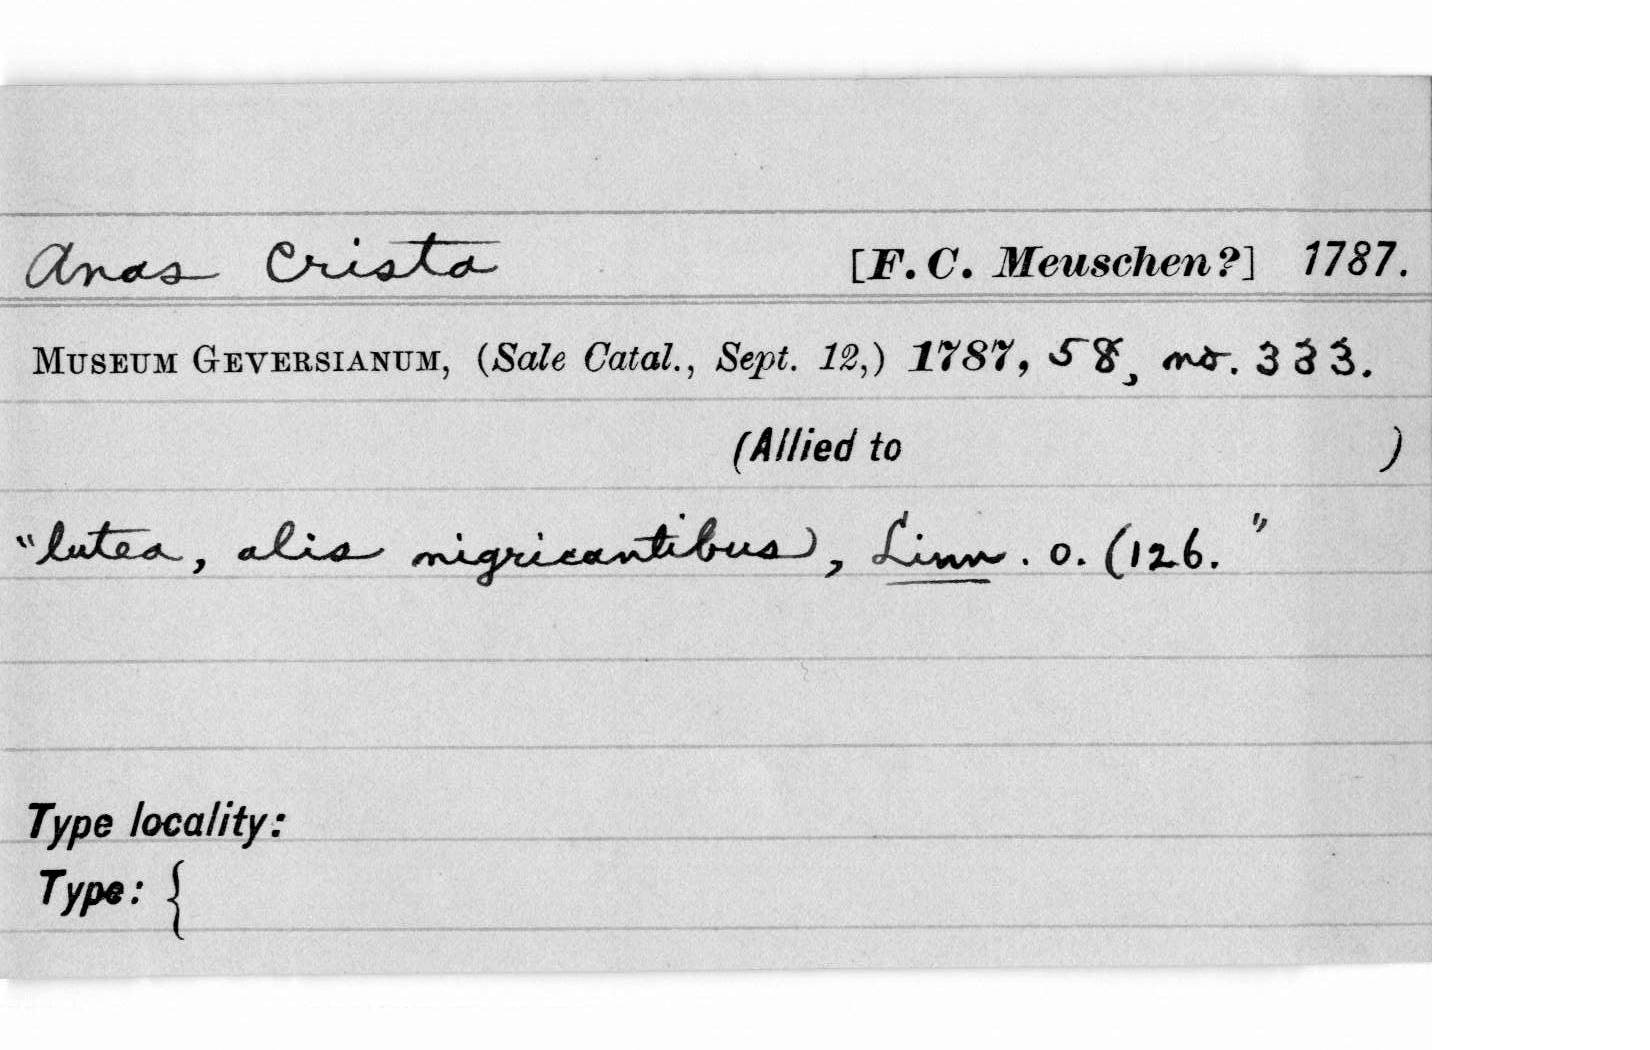 Anas Crista [F. C. Meuschen?] 1787.
MUSEUM GEVERSIANUM, (Sale Catal., Sept. 12,) 1787, 58, no. 333.
(Allied to )
"lutea, alis nigricantibus), Linn. o. (126."
Type locality:
Type: {